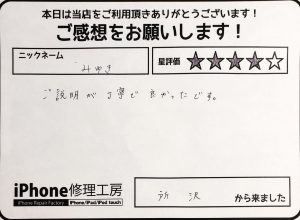 本日は当店をご利用頂きありがとうございます!
ご感想をお願いします!
ニックネーム
みゆき
星評価 ★★★★☆
ご説明が丁寧で良かったです。
iPhone修理工房
iPhone Repair Factory
iPhone/iPad/iPod touch
所沢 から来ました